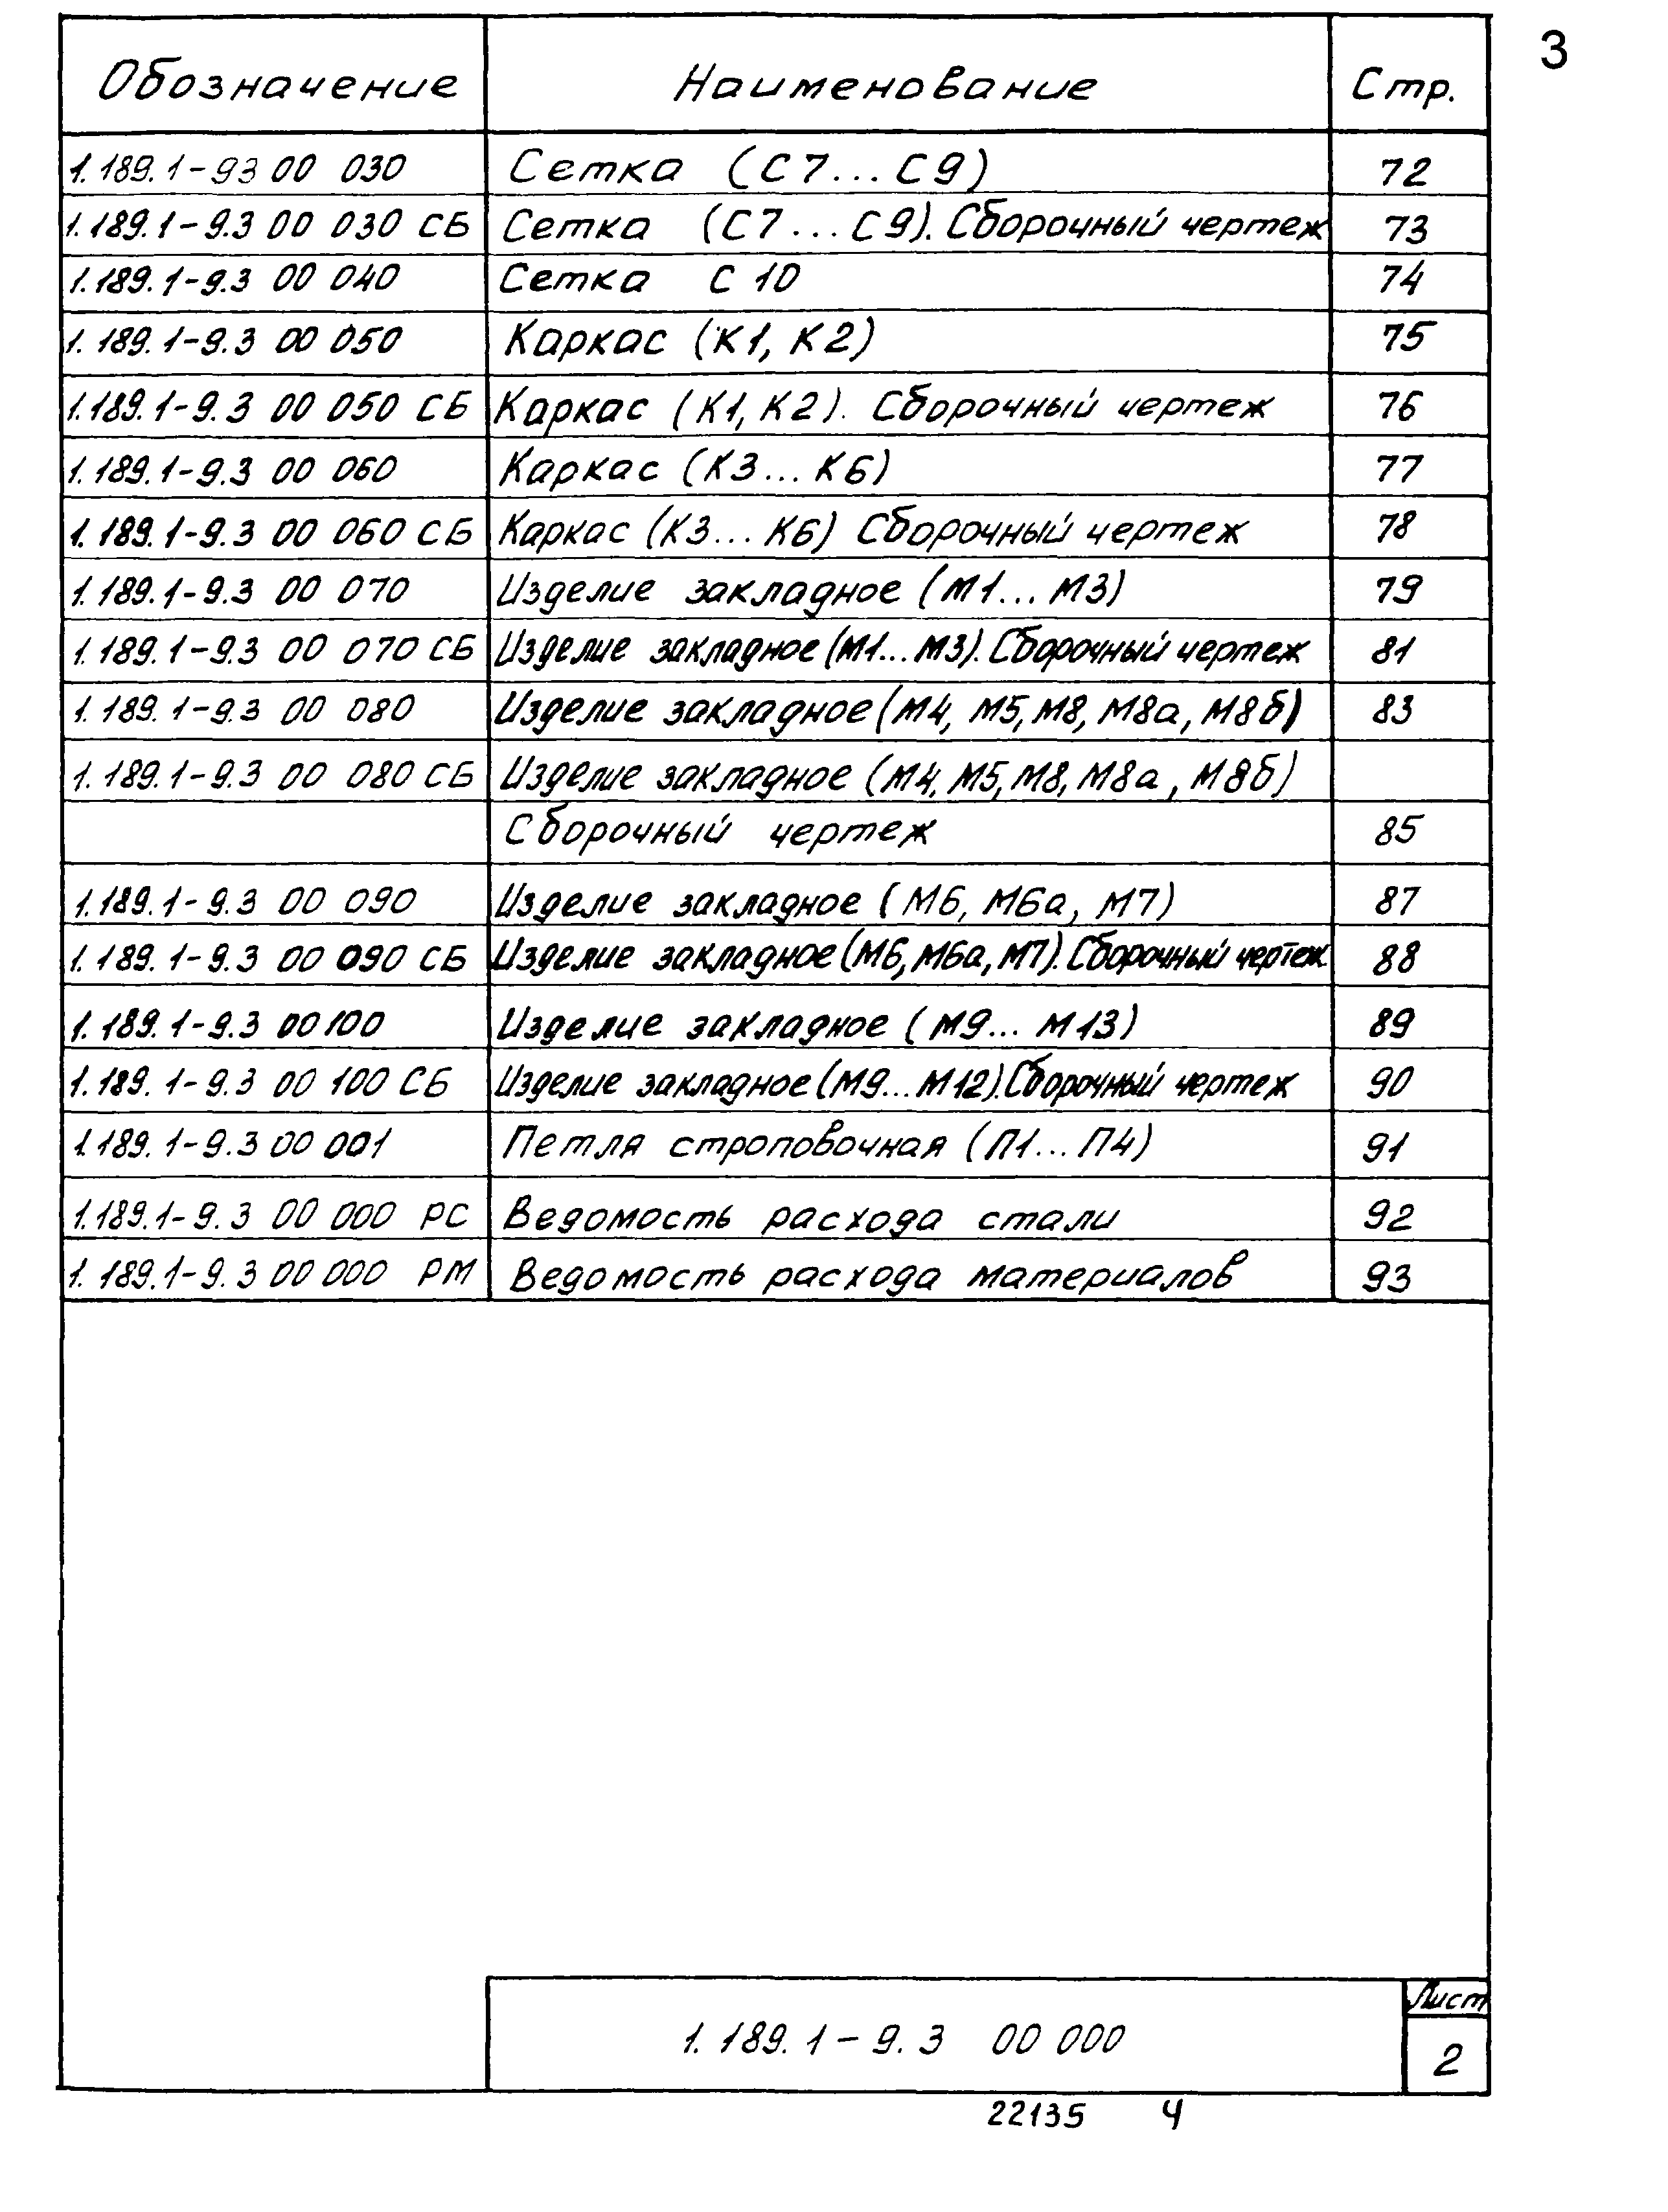 3
Обозначение Наименование Стр.
1.189.1-93 00 030 Сетка (С7...С9) 72
1.189.1-9.3 00 030 СБ Сетка (С7...С9). Сборочный чертеж 73
1.189.1-9.3 00 040 Сетка С 10 74
1.189.1-9.3 00 050 Каркас (К1, К2) 75
1.189.1-9.3 00 050 СБ Каркас (К1, К2). Сборочный чертеж 76
1.189.1-9.3 00 060 Каркас (К3...К6) 77
1.189.1-9.3 00 060 СБ Каркас (К3...К6) Сборочный чертеж 78
1.189.1-9.3 00 070 Изделие закладное (М1...М3) 79
1.189.1-9.3 00 070 СБ Изделие закладное (М1...М3). Сборочный чертеж 81
1.189.1-9.3 00 080 Изделие закладное (М4, М5, М8, М8а, М8б) 83
1.189.1-9.3 00 080 СБ Изделие закладное (М4, М5, М8, М8а, М8б)
Сборочный чертеж 85
1.189.1-9.3 00 090 Изделие закладное (М6, М6а, М7) 87
1.189.1-9.3 00 090 СБ Изделие закладное (М6, М6а, М7). Сборочный чертеж 88
1.189.1-9.3 00 100 Изделие закладное (М9...М13) 89
1.189.1-9.3 00 100 СБ Изделие закладное (М9...М12). Сборочный чертеж 90
1.189.1-9.3 00 001 Петля строповочная (П1...П4) 91
1.189.1-9.3 00 000 РС Ведомость расхода стали 92
1.189.1-9.3 00 000 РМ Ведомость расхода материалов 93
Лист
1.189.1-9.3 00 000 2
22135 4